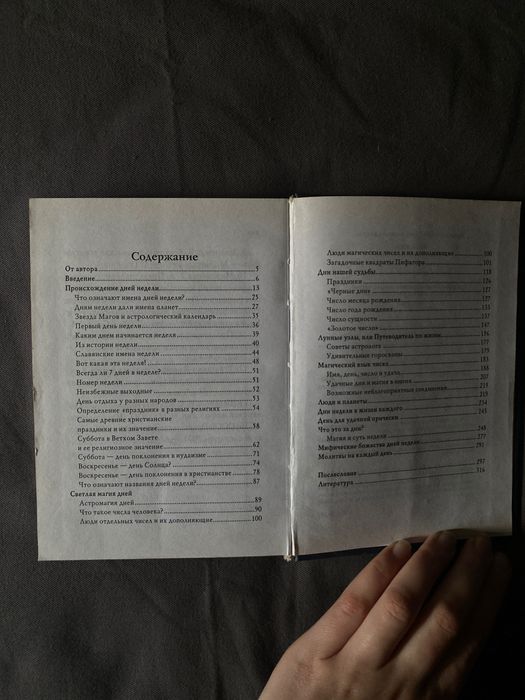 Содержание
От автора 5
Введение 6
Происхождение дней недели 13
Что означают имена дней недели? 25
Дням недели дали имена планет 27
Звезда Магов и астрологический календарь 35
Первый день недели 36
Каким днем начинается неделя 39
Из истории недели 40
Славянские имена недели 44
Вот какая эта неделя! 48
Всегда ли 7 дней в неделе? 51
Номер недели 51
Неизбежные выходные 52
День отдыха у разных народов 53
Определение «праздник» в разных религиях 54
Самые древние христианские
праздники и их значение 58
Суббота в Ветхом Завете
и ее религиозное значение 62
Суббота — день поклонения в иудаизме 71
Воскресенье — день Солнца? 74
Воскресенье — день поклонения в христианстве 78
Что означают названия дней недели? 87
Светлая магия дней
Астромагия дней 89
Что такое числа человека? 90
Люди отдельных чисел и их дополняющие 100
Люди магических чисел и их дополняющие 100
Загадочные квадраты Пифагора 101
Дни нашей судьбы 118
Праздники 126
«Черные дни» 127
Число месяца рождения
Число года рождения 136
Число сущности 137
«Золотое число» 147
Лунные узлы, или Путеводитель по жизни 156
Советы астролога 177
Удивительные гороскопы 175
Магический язык чисел 183
Имя, день, число и удача 188
Удачные дни и магия в имени 207
Возможные неблагоприятные соединения 215
Люди и планеты 219
Дни недели в жизни каждого 234
День для удачной прически 245
Что это за дни?
Магия и суть недели 248
Мифические божества дней недели 277
Молитвы на каждый день 291
Послесловие 297
Литература 316